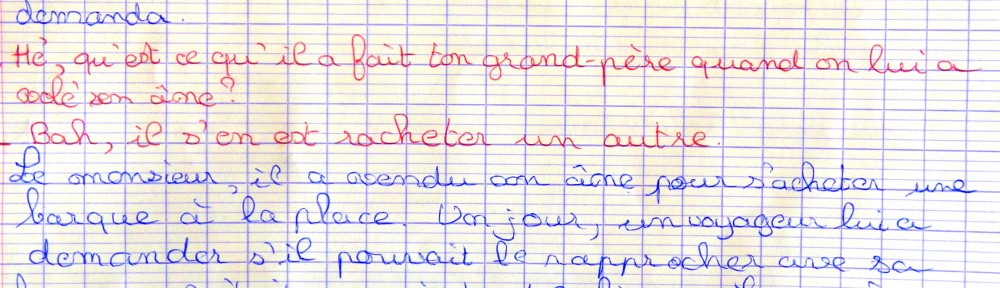 demanda.
Hé, qu'est ce qu'il a fait ton grand-père quand on lui a
volé son âne?
- Bah, il s'en est racheter un autre.
Le monsieur, il a vendu son âne pour s'acheter une
barque à la place. Un jour, un voyageur lui a
demander s'il pouvait le rapprocher avec sa